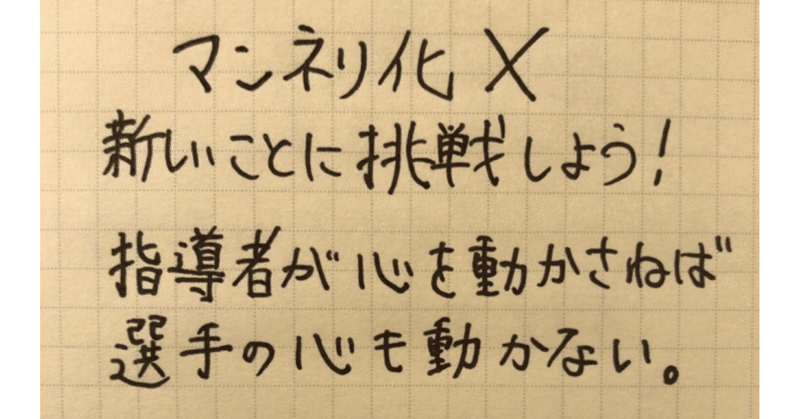 マンネリ化 ×
新しいことに挑戦しよう!
指導者が心を動かさねば
選手の心も動かない。